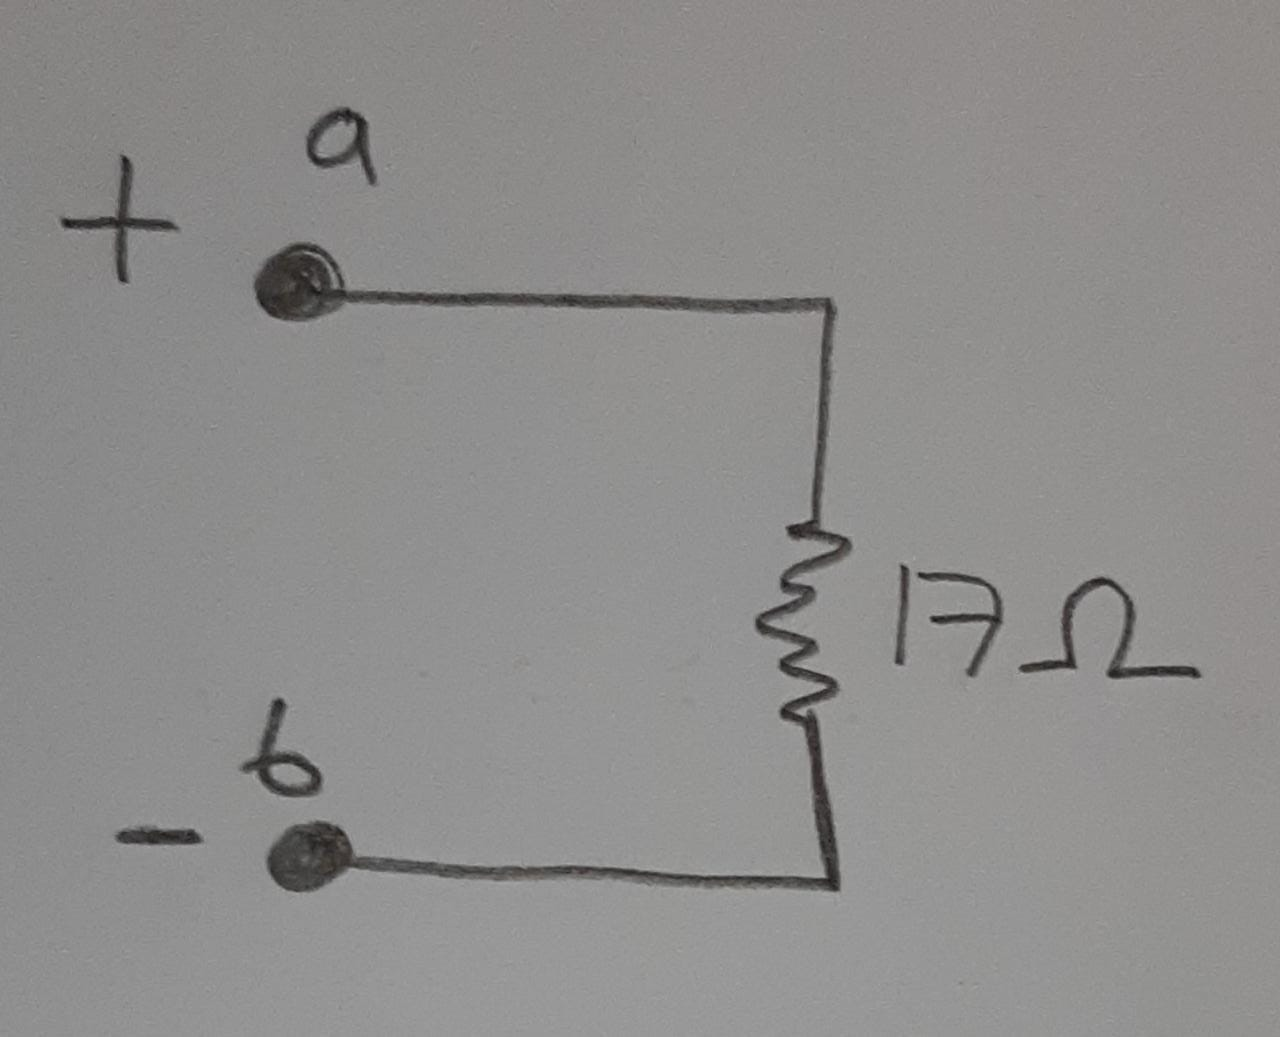 a
+
17 Ω
b
-